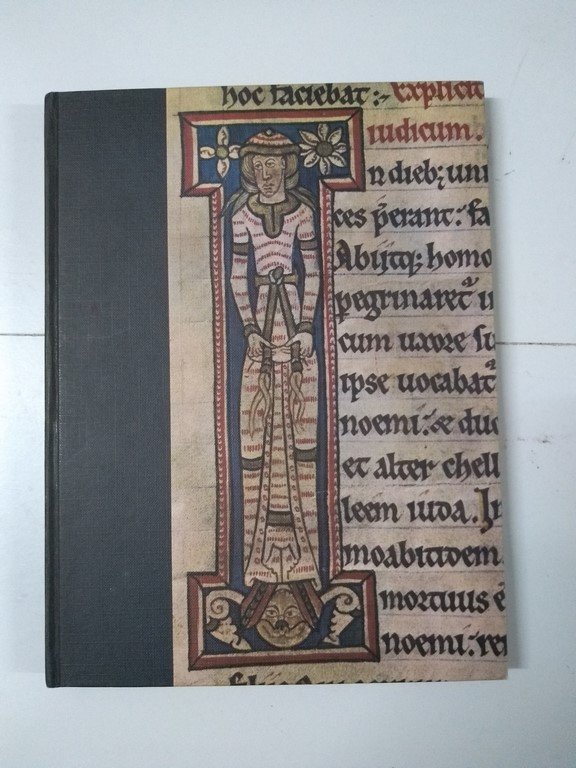 hoc faciebat :~ Explicit
iudicum.
n dieb; uni
ces p̄erant: fa
Abijtq; homo
pegrinaret̃ i
cum uxore su
ipse uocabat̃
noemi: &e duo
et alter chell
leem iuda. In
moabitidem
mortuus ē
noemi: re